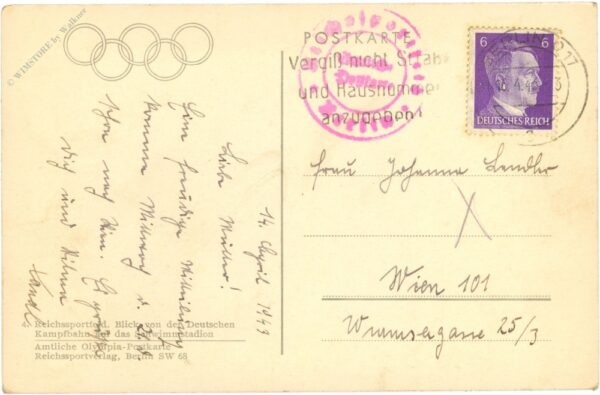 © WIMSTORE by Walkner
POSTKARTE
Vergiß nicht Straße
und Hausnummer
anzugeben!
6 6
DEUTSCHES REICH
14. April 1943
Liebe Mutter!
Eine freudige Mitteilung
komme Mittwoch d. 21.4.
schon nach Wien. Es grüßt
Dich und
Frau Johanna Kendler
Wien 101
25/3
4. Reichssportfeld. Blick von der Deutschen
Kampfbahn auf das Schwimmstadion
Amtliche Olympia-Postkarte
Reichssportverlag, Berlin SW 68